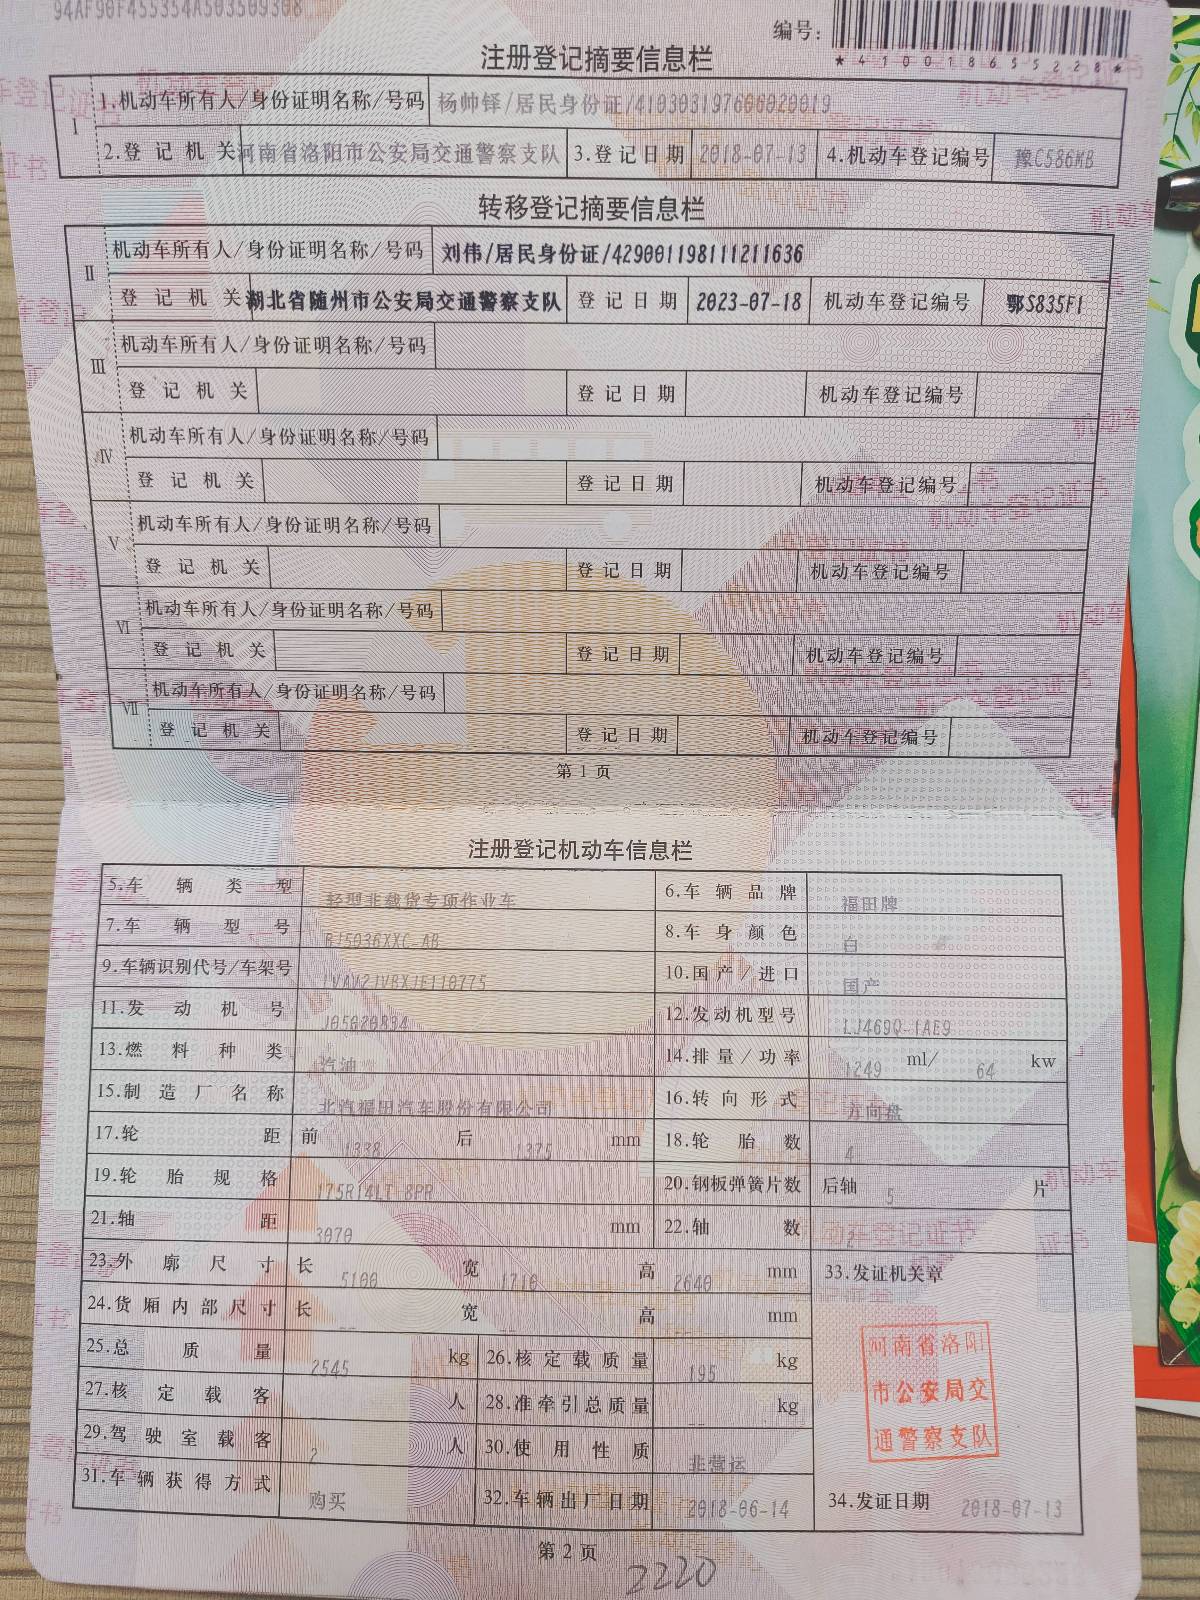 94AF90F455354A503509308
编号:
*410018655228*
注册登记摘要信息栏
I
1.机动车所有人/身份证明名称/号码 杨帅铎/居民身份证/410303197606020019
2.登记机关 河南省洛阳市公安局交通警察支队 3.登记日期 2018-07-13 4.机动车登记编号 豫C586MB
转移登记摘要信息栏
II
机动车所有人/身份证明名称/号码 刘伟/居民身份证/429001198111211636
登记机关 湖北省随州市公安局交通警察支队 登记日期 2023-07-18 机动车登记编号 鄂S835F1
III
机动车所有人/身份证明名称/号码
登记机关 登记日期 机动车登记编号
IV
机动车所有人/身份证明名称/号码
登记机关 登记日期 机动车登记编号
V
机动车所有人/身份证明名称/号码
登记机关 登记日期 机动车登记编号
VI
机动车所有人/身份证明名称/号码
登记机关 登记日期 机动车登记编号
VII
机动车所有人/身份证明名称/号码
登记机关 登记日期 机动车登记编号
第1页
注册登记机动车信息栏
5.车辆类型 轻型非载货专项作业车 6.车辆品牌 福田牌
7.车辆型号 BJ5036XXC-AB 8.车身颜色 白
9.车辆识别代号/车架号 LVAV2JVBXJE110775 10.国产/进口 国产
11.发动机号 J05020834 12.发动机型号 LJ469Q-1AE9
13.燃料种类 汽油 14.排量/功率 1249 ml/ 64 kw
15.制造厂名称 北汽福田汽车股份有限公司 16.转向形式 方向盘
17.轮距 前 1338 后 1375 mm 18.轮胎数 4
19.轮胎规格 175R14LT-8PR 20.钢板弹簧片数 后轴 5 片
21.轴距 3070 mm 22.轴数 2
23.外廓尺寸 长 5100 宽 1710 高 2640 mm 33.发证机关章
24.货厢内部尺寸 长 -- 宽 -- 高 -- mm
25.总质量 2545 kg 26.核定载质量 195 kg
27.核定载客 -- 人 28.准牵引总质量 -- kg
29.驾驶室载客 2 人 30.使用性质 非营运
31.车辆获得方式 购买 32.车辆出厂日期 2018-06-14 34.发证日期 2018-07-13
河南省洛阳
市公安局交
通警察支队
第2页
2220